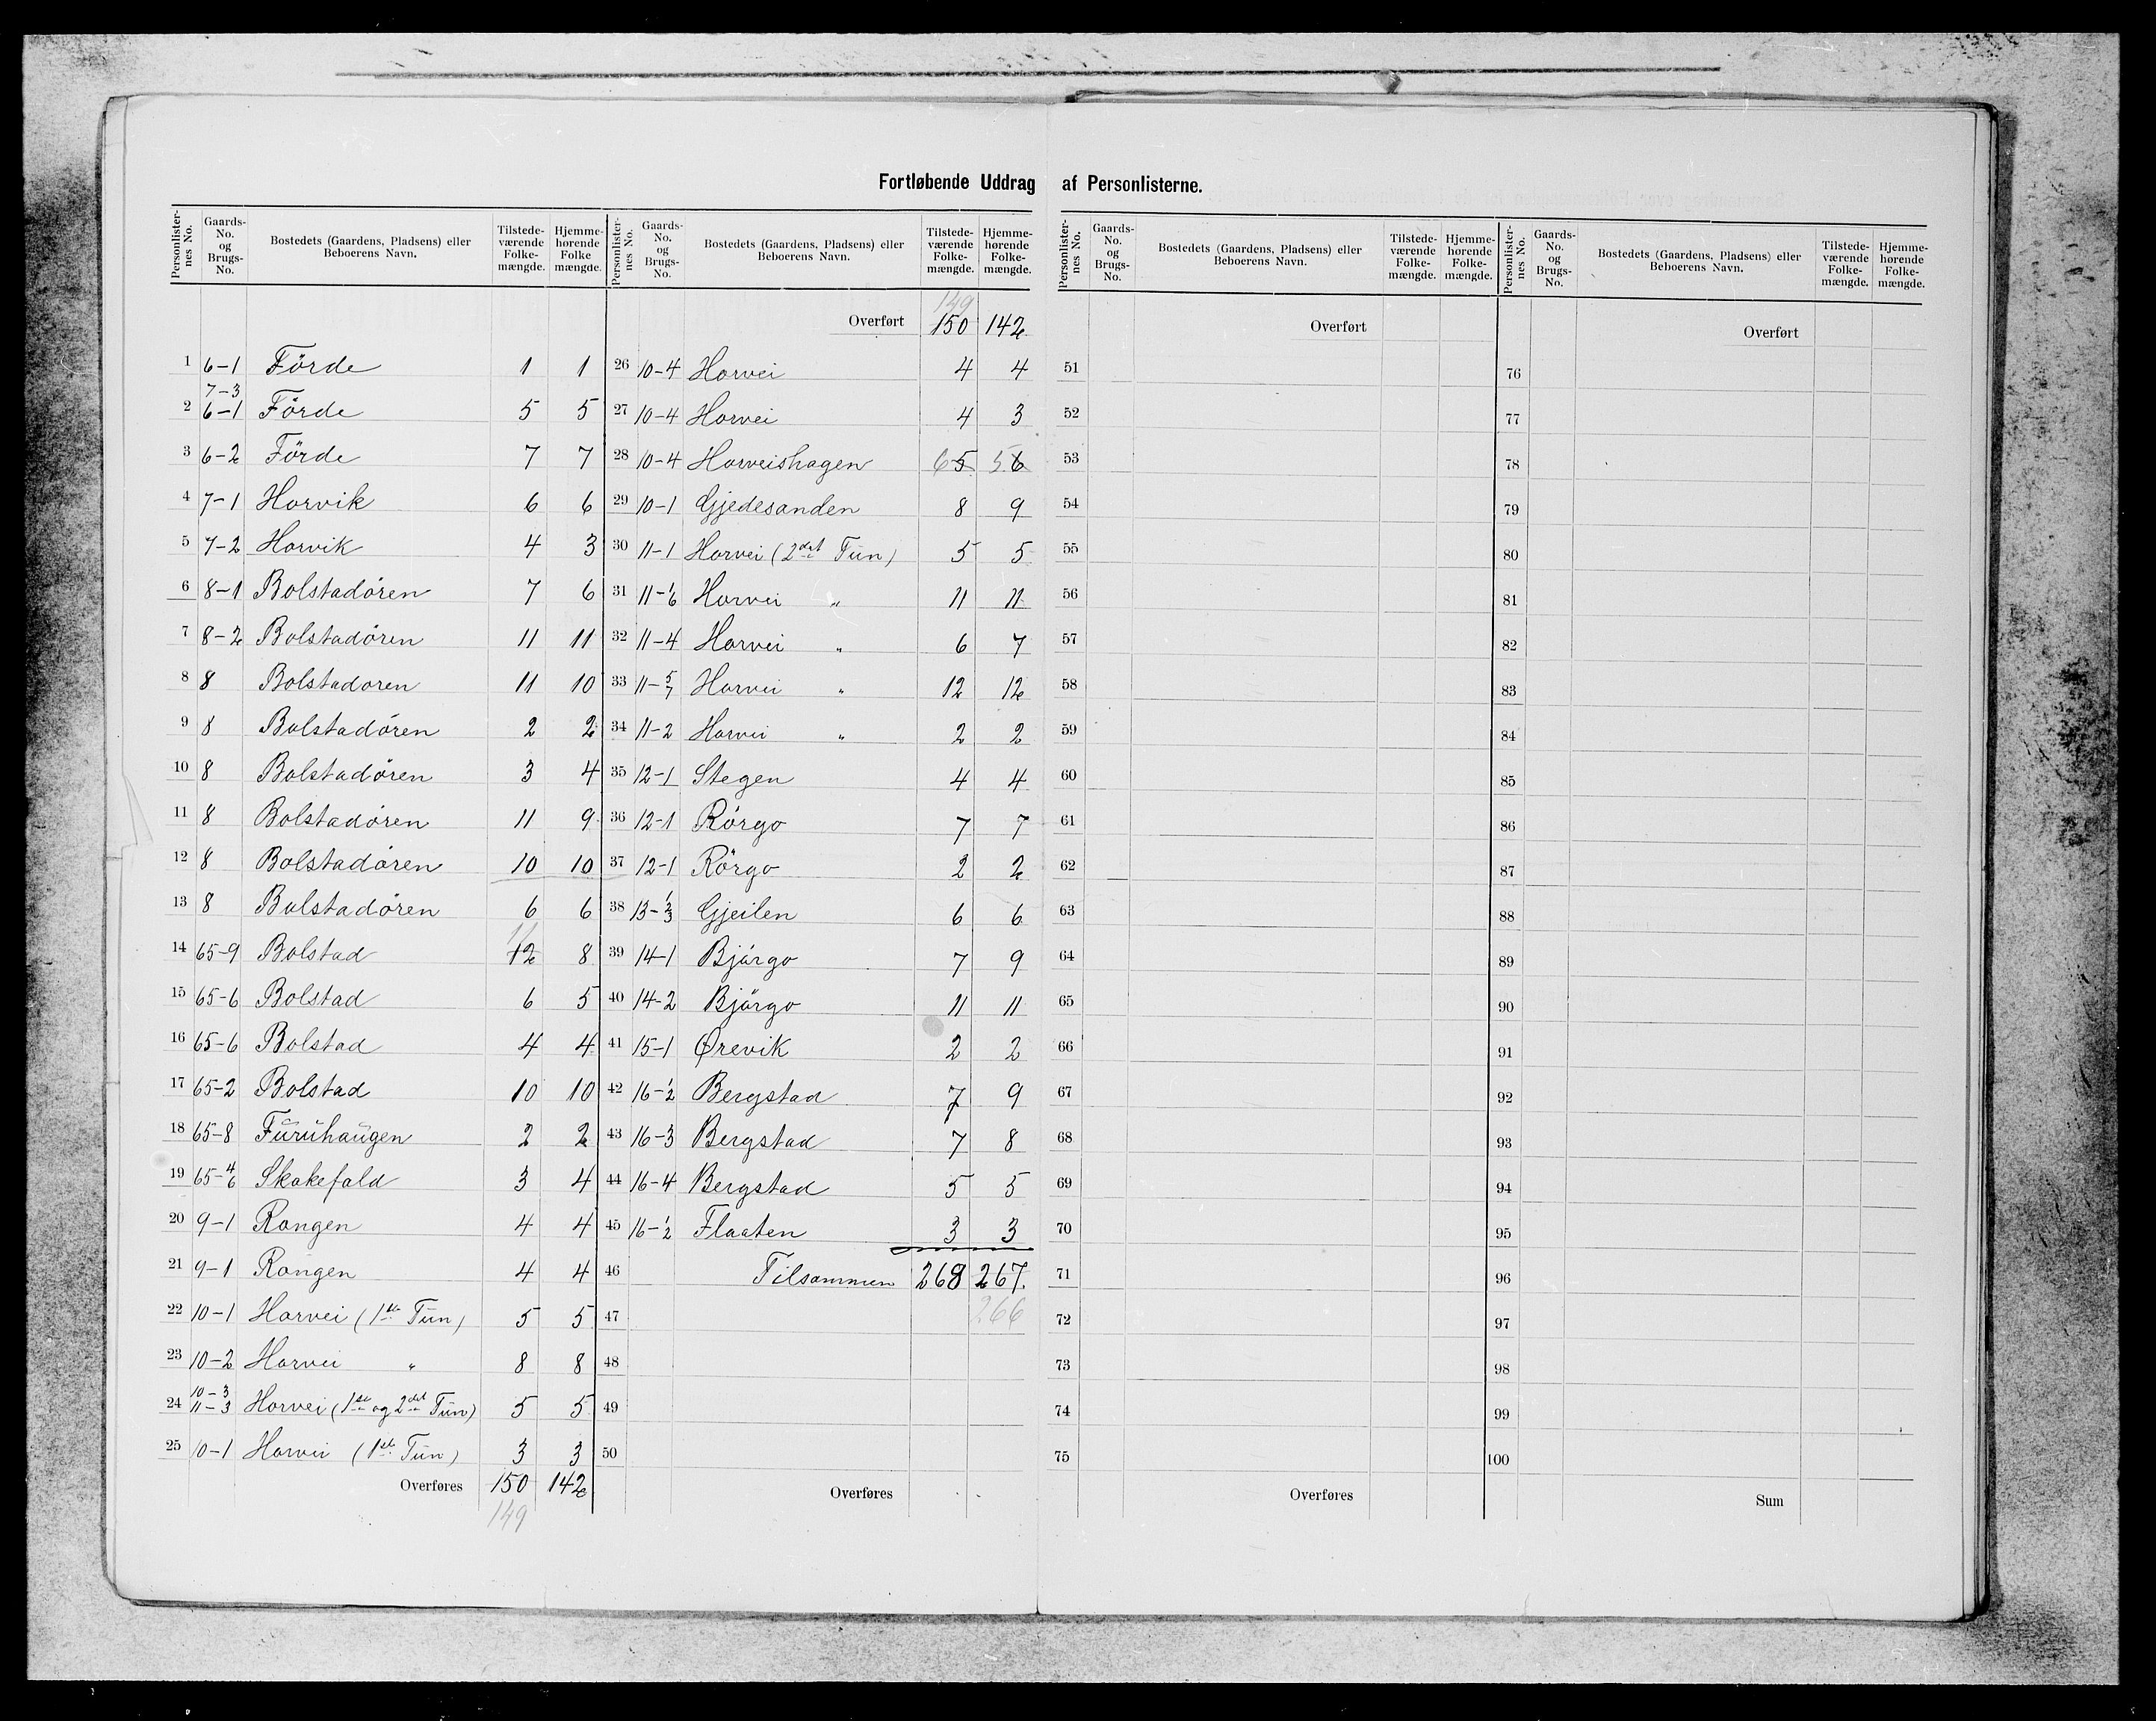 Fortløbende Uddrag af Personlisterne.
Personlister-nes No. Gaards-No. og Brugs-No. Bostedets (Gaardens, Pladsens) eller Beboerens Navn. Tilstede-værende Folke-mængde. Hjemme-hørende Folke mængde.
1 6-1 Förde 1 1
2 7-3 6-1 Förde 5 5
3 6-2 Förde 7 7
4 7-1 Horvik 6 6
5 7-2 Horvik 4 3
6 8-1 Bolstadören 7 6
7 8-2 Bolstadören 11 11
8 8 Bolstadoren 11 10
9 8 Bolstadören 2 2
10 8 Bolstadören 3 4
11 8 Bolstadören 11 9
12 8 Bolstadören 10 10
13 8 Bolstadören 6 6
14 65-9 Bolstad 11 12 8
15 65-6 Bolstad 6 5
16 65-6 Bolstad 4 4
17 65-2 Bolstad 10 10
18 65-8 Furuhaugen 2 2
19 65-4/6 Skakefald 3 4
20 9-1 Rongen 4 4
21 9-1 Rongen 4 4
22 10-1 Horvei (1ste Tun) 5 5
23 10-2 Horvei " 8 8
24 10-3 11-3 Horvei (1ste og 2det Tun) 5 5
25 10-1 Horvei (1ste Tun) 3 3
Overføres 150 142
149
Personlister-nes No. Gaards-No. og Brugs-No. Bostedets (Gaardens, Pladsens) eller Beboerens Navn. Tilstede-værende Folke-mængde. Hjemme-hørende Folke-mængde.
149
Overført 150 142
26 10-4 Horvei 4 4
27 10-4 Horvei 4 3
28 10-4 Horveishagen 6 5 5 6
29 10-1 Gjedesanden 8 9
30 11-1 Horvei (2det Tun) 5 5
31 11-1/6 Horvei " 11 11
32 11-4 Horvei " 6 7
33 11-5/7 Horvei " 12 12
34 11-2 Horvei " 2 2
35 12-1 Stegen 4 4
36 12-1 Rörgo 7 7
37 12-1 Rörgo 2 2
38 13-1/2/3 Gjeilen 6 6
39 14-1 Bjórgo 7 9
40 14-2 Bjórgo 11 11
41 15-1 Ørevik 2 2
42 16-1/2 Bergstad 7 9
43 16-3 Bergstad 7 8
44 16-4 Bergstad 5 5
45 16-1/2 Flaaten 3 3
46 Tilsammen 268 267.
47 266
48
49
50
Overføres
Personlister-nes No. Gaards-No. og Brugs-No. Bostedets (Gaardens, Pladsens) eller Beboerens Navn. Tilstede-værende Folke-mængde. Hjemme-hørende Folke-mængde.
Overført
51
52
53
54
55
56
57
58
59
60
61
62
63
64
65
66
67
68
69
70
71
72
73
74
75
Overføres
Personlister-nes No. Gaards-No. og Brugs-No. Bostedets (Gaardens, Pladsens) eller Beboerens Navn. Tilstede-værende Folke-mængde. Hjemme-hørende Folke-mængde.
Overført
76
77
78
79
80
81
82
83
84
85
86
87
88
89
90
91
92
93
94
95
96
97
98
99
100
Sum